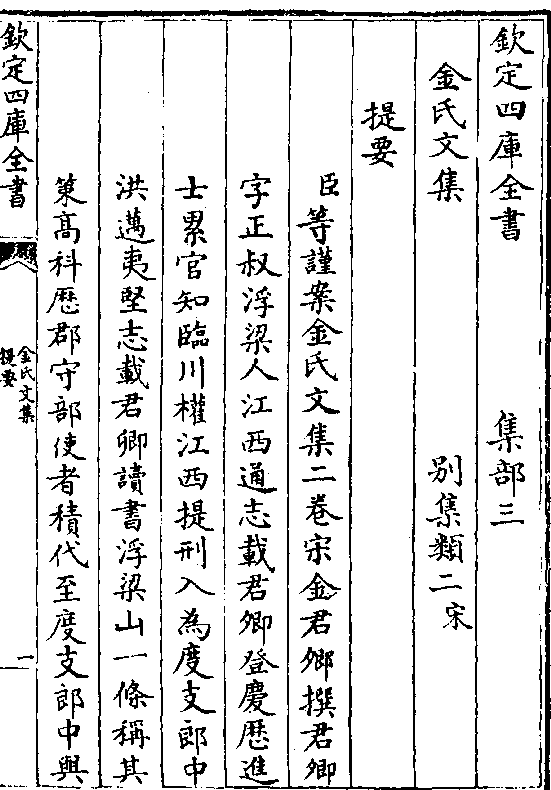 欽定四庫全書　　　　集部三
金氏文集　　　　別集類二宋
提要
臣等謹案金氏文集二卷宋金君卿撰君卿
字正叔浮梁人江西通志載君卿登慶厯進
士累官知臨川權江西提刑入為度支郎中
洪邁夷堅志載君卿讀書浮梁山一條稱其
策高科歴郡守部使者積代至度支郎中與
欽定四庫全書
金氏文集
提要
一